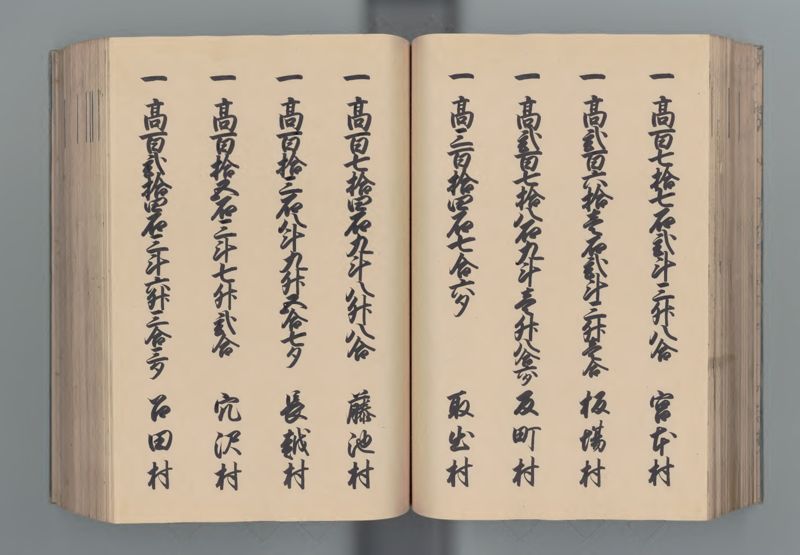 一 高百七拾七石弐斗三升八合 宮本村
一 高弐百六拾壱石弐斗三升壱合 板場村
一 高弐百七拾八石九斗壱升八合六夕 反町村
一 高三百拾四石七合六夕 取出村
一 高百七拾四石九斗八升八合 藤池村
一 高百拾三石八斗九升五合七夕 長越村
一 高百拾五石三斗七升弐合 穴沢村
一 高百弐拾四石三斗六升三合三夕 田村